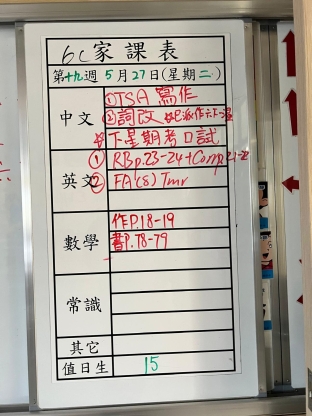 6C家課表
第十九週 5月27日(星期二)
中文
①TSA 寫作
②詞改
下星期考口試
英文
① RBp.23-24+Comp
② FA(8) Tmr
數學
作P.18-19
書P.78-79
常識
其它
值日生 15